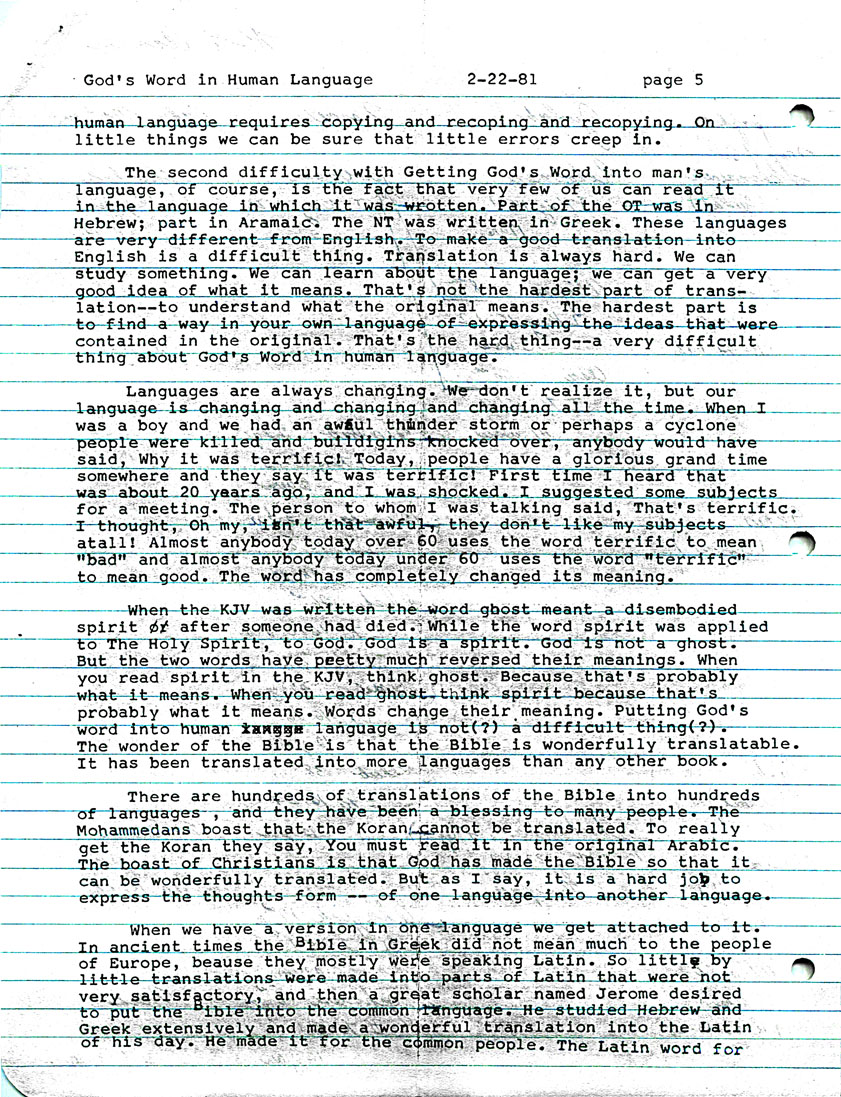 God's Word in Human Language 2-22-81 page 5
human language requires copying and recoping and recopying. On
little things we can be sure that little errors creep in.
The second difficulty with Getting God's Word into man's
language, of course, is the fact that very few of us can read it
in the language in which it was wrotten. Part of the OT was in
Hebrew; part in Aramaic. The NT was written in Greek. These languages
are very different from English. To make a good translation into
English is a difficult thing. Translation is always hard. We can
study something. We can learn about the language; we can get a very
good idea of what it means. That's not the hardest part of trans-
lation--to understand what the original means. The hardest part is
to find a way in your own language of expressing the ideas that were
contained in the original. That's the hard thing--a very difficult
thing about God's Word in human language.
Languages are always changing. We don't realize it, but our
language is changing and changing and changing all the time. When I
was a boy and we had an awful thunder storm or perhaps a cyclone
people were killed and buildigins knocked over, anybody would have
said, Why it was terrific! Today, people have a glorious grand time
somewhere and they say it was terrific! First time I heard that
was about 20 years ago, and I was shocked. I suggested some subjects
for a meeting. The person to whom I was talking said, That's terrific.
I thought, Oh my, isn't that awful, they don't like my subjects
atall! Almost anybody today over 60 uses the word terrific to mean
"bad" and almost anybody today under 60 uses the word "terrific"
to mean good. The word has completely changed its meaning.
When the KJV was written the word ghost meant a disembodied
spirit or after someone had died. While the word spirit was applied
to The Holy Spirit, to God. God is a spirit. God is not a ghost.
But the two words have peetty much reversed their meanings. When
you read spirit in the KJV, think ghost. Because that's probably
what it means. When you read ghost think spirit because that's
probably what it means. Words change their meaning. Putting God's
word into human language is not(?) a difficult thing(?).
The wonder of the Bible is that the Bible is wonderfully translatable.
It has been translated into more languages than any other book.
There are hundreds of translations of the Bible into hundreds
of languages , and they have been a blessing to many people. The
Mohammedans boast that the Koran cannot be translated. To really
get the Koran they say, You must read it in the original Arabic.
The boast of Christians is that God has made the Bible so that it
can be wonderfully translated. But as I say, it is a hard job to
express the thoughts form -- of one language into another language.
When we have a version in one language we get attached to it.
In ancient times the Bible in Greek did not mean much to the people
of Europe, beause they mostly were speaking Latin. So little by
little translations were made into parts of Latin that were not
very satisfactory, and then a great scholar named Jerome desired
to put the Bible into the common language. He studied Hebrew and
Greek extensively and made a wonderful translation into the Latin
of his day. He made it for the common people. The Latin word for